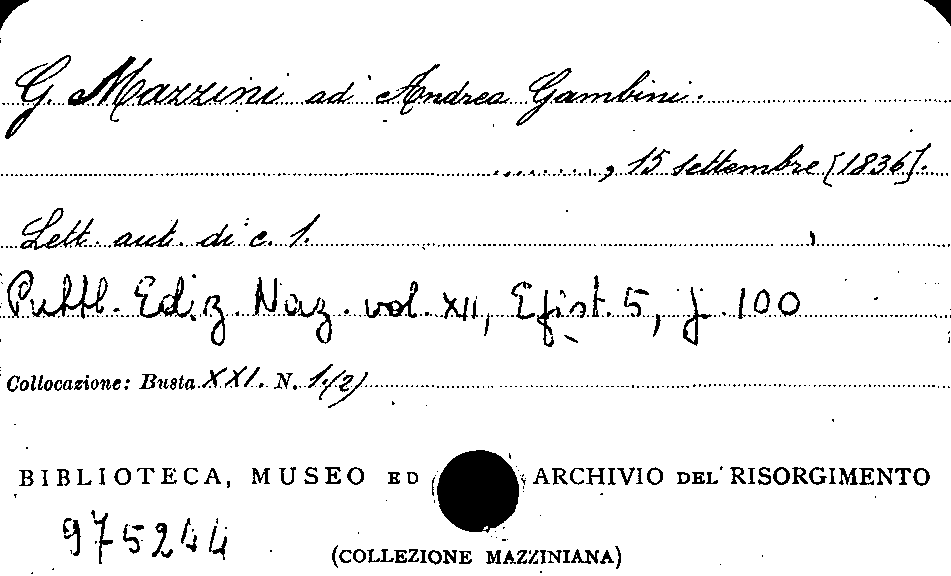 G. Mazzini ad Andrea Gambini.
........, 15 settembre [1836].
Lett. aut. di c. 1.
Pubbl. Ediz. Naz. vol. XII, Epist. 5, p. 100
Collocazione: Busta XXI. N. 1.(2)
BIBLIOTECA, MUSEO ED ARCHIVIO DEL RISORGIMENTO
975244
(COLLEZIONE MAZZINIANA)